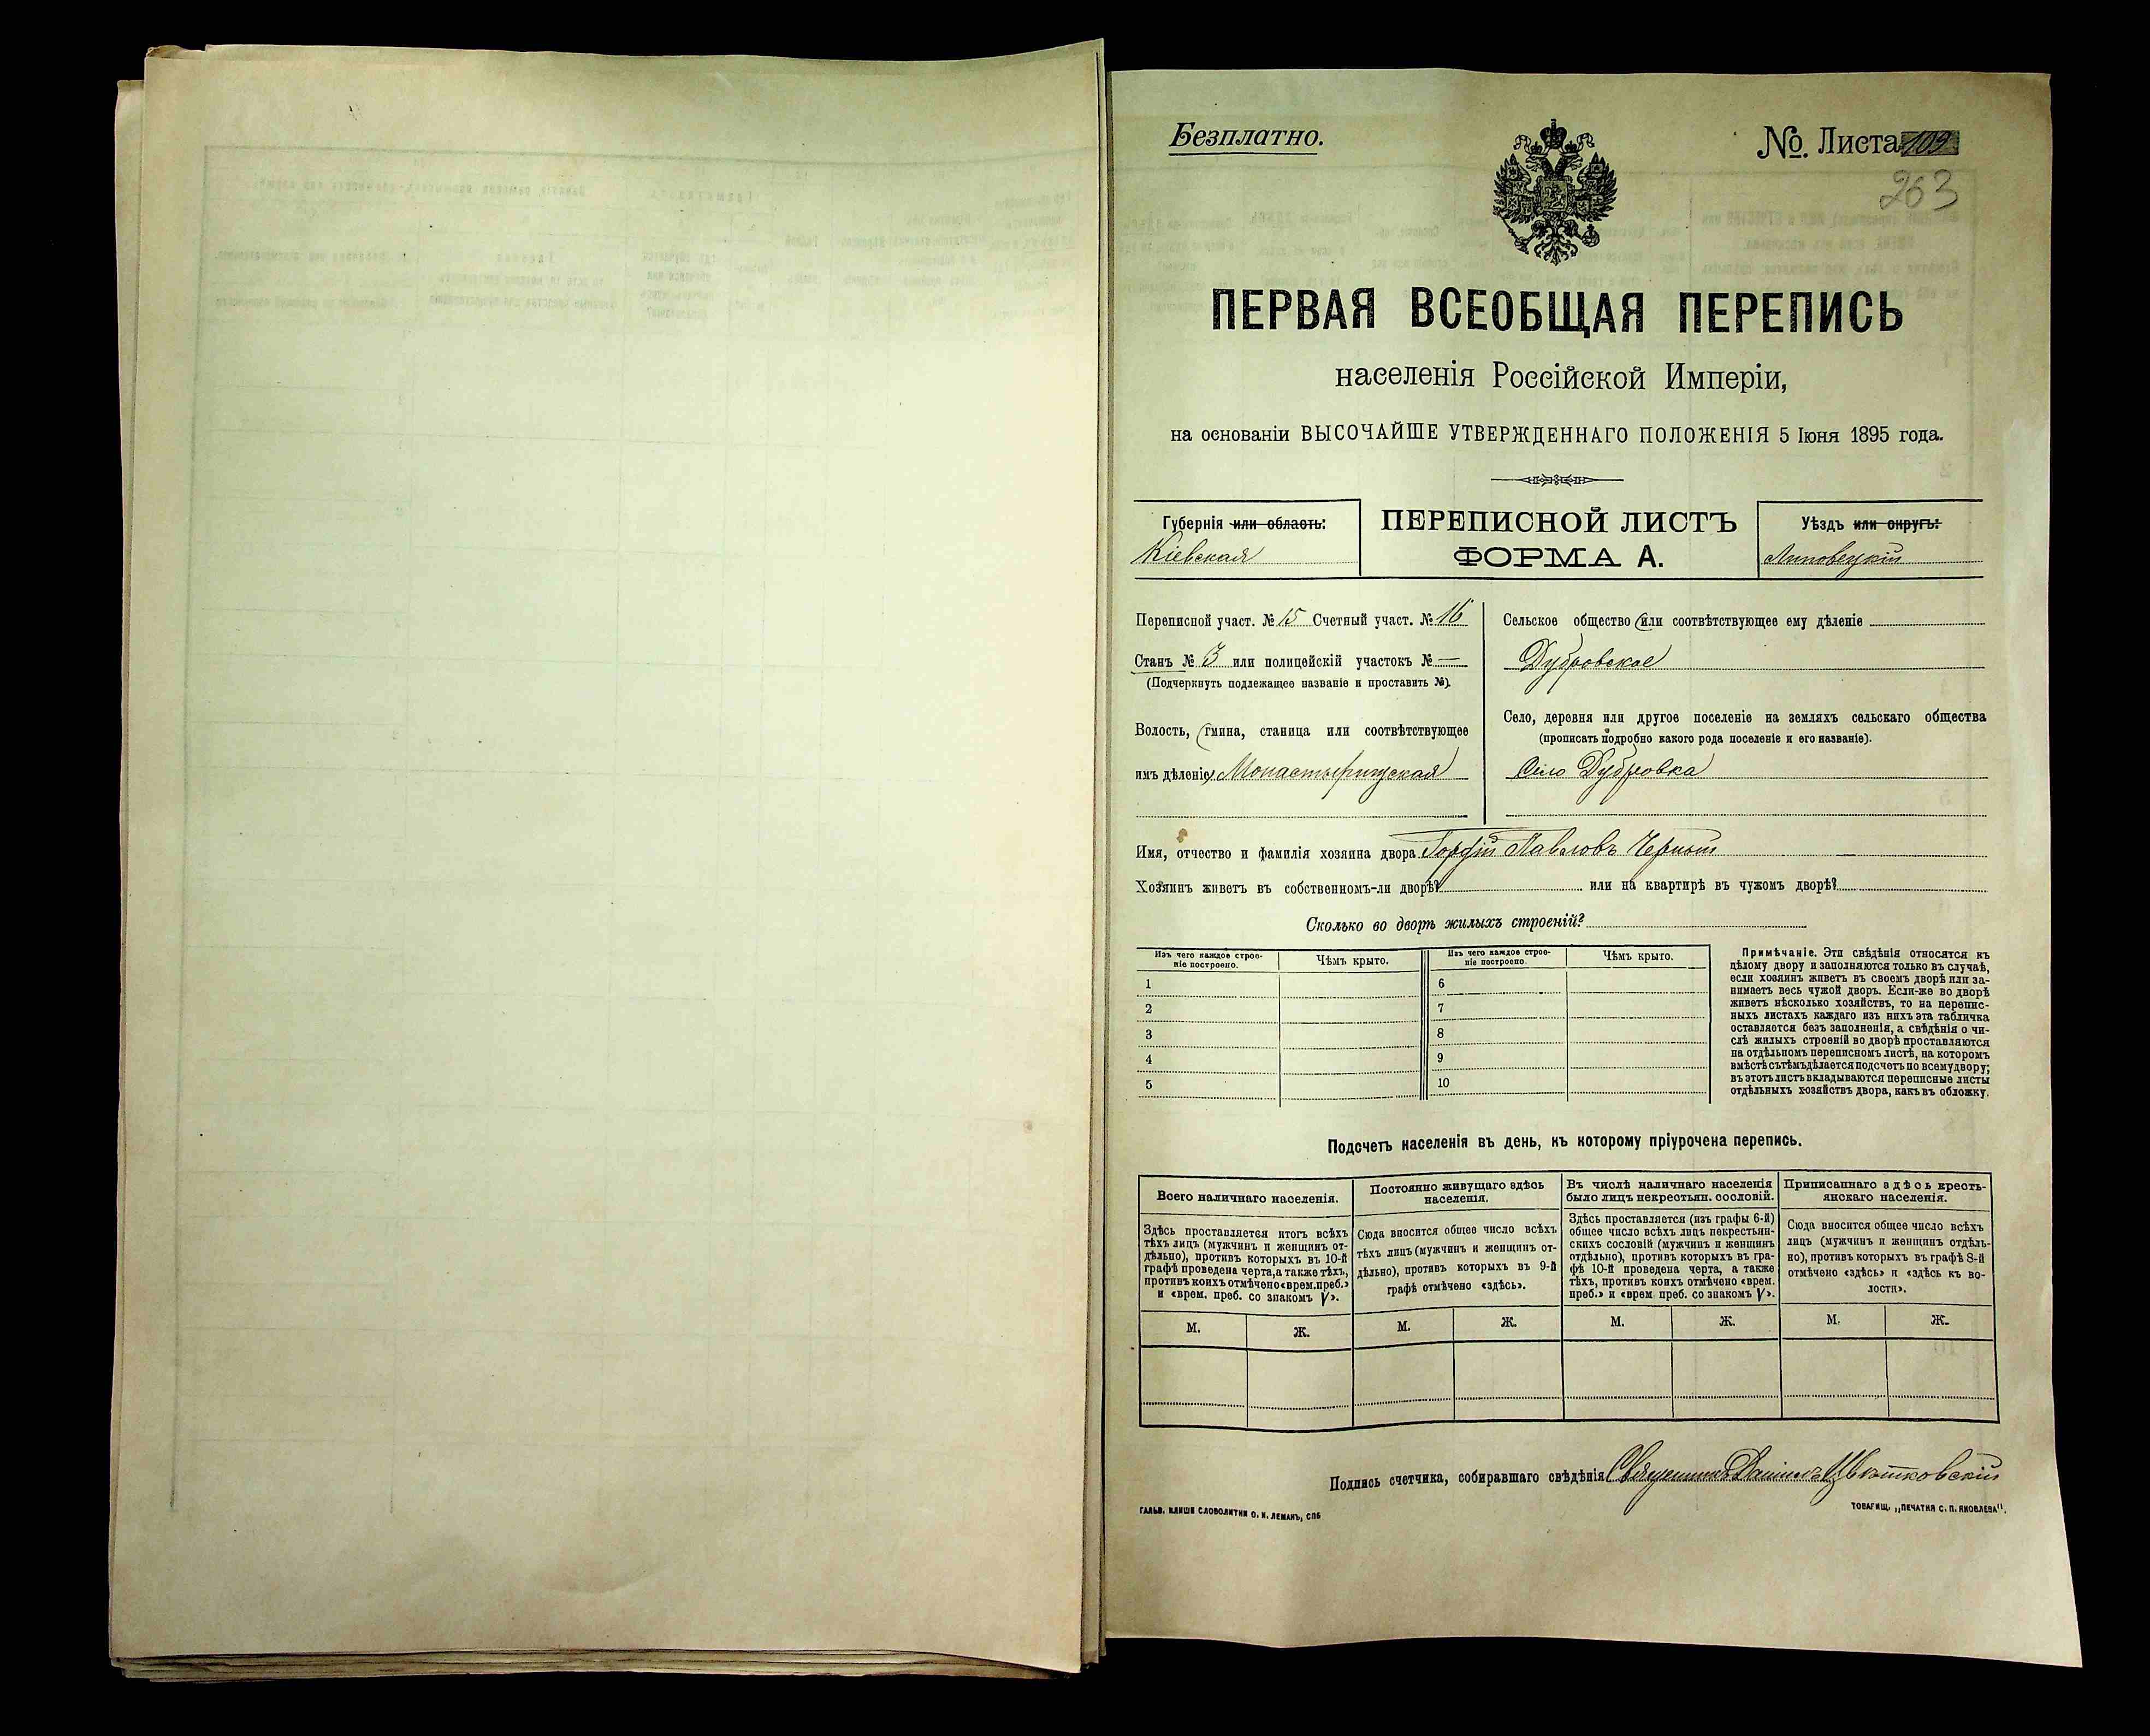 Безплатно.
№. Листа 109
263
ПЕРВАЯ ВСЕОБЩАЯ ПЕРЕПИСЬ
населенія Россійской Имперіи,
на основаніи ВЫСОЧАЙШЕ УТВЕРЖДЕННАГО ПОЛОЖЕНІЯ 5 Іюня 1895 года.
Губернія или область:
Кіевская
ПЕРЕПИСНОЙ ЛИСТЪ
ФОРМА А.
Уѣздъ или округъ:
Липовецкій
Переписной участ. № 15 Счетный участ. № 16
Станъ № 3 или полицейскій участокъ № —
(Подчеркнуть подлежащее названіе и проставить №).
Волость, (гмина, станица или соотвѣтствующее
имъ дѣленіе) Монастырищская
Сельское общество (или соотвѣтствующее ему дѣленіе
Дубровское
Село, деревня или другое поселеніе на земляхъ сельскаго общества
(прописать подробно какого рода поселеніе и его названіе).
Село Дубровка
Имя, отчество и фамилія хозяина двора Гордій Павловъ Черный
Хозяинъ живетъ въ собственномъ-ли дворѣ? или на квартирѣ въ чужомъ дворѣ?
Сколько во дворѣ жилыхъ строеній?
Изъ чего каждое строе-
ніе построено.
Чѣмъ крыто.
Изъ чего каждое строе-
ніе построено.
Чѣмъ крыто.
1
6
2
7
3
8
4
9
5
10
Примѣчаніе. Эти свѣдѣнія относятся къ
цѣлому двору и заполняются только въ случаѣ,
если хозяинъ живетъ въ своемъ дворѣ или за-
нимаетъ весь чужой дворъ. Если-же во дворѣ
живетъ нѣсколько хозяйствъ, то на перепис-
ныхъ листахъ каждаго изъ нихъ эта табличка
оставляется безъ заполненія, а свѣдѣнія о чи-
слѣ жилыхъ строеній во дворѣ проставляются
на отдѣльномъ переписномъ листѣ, на которомъ
вмѣстѣ съ тѣмъ дѣлается подсчетъ по всему двору;
въ этотъ листъ вкладываются переписные листы
отдѣльныхъ хозяйствъ двора, какъ въ обложку.
Подсчетъ населенія въ день, къ которому пріурочена перепись.
Всего наличнаго населенія.
Здѣсь проставляется итогъ всѣхъ
тѣхъ лицъ (мужчинъ и женщинъ от-
дѣльно), противъ которыхъ въ 10-й
графѣ проведена черта, а также тѣхъ,
противъ коихъ отмѣчено «врем. преб.»
и «врем. преб. со знакомъ V».
Постоянно живущаго здѣсь
населенія.
Сюда вносится общее число всѣхъ
тѣхъ лицъ (мужчинъ и женщинъ от-
дѣльно), противъ которыхъ въ 9-й
графѣ отмѣчено «здѣсь».
Въ числѣ наличнаго населенія
было лицъ некрестьян. сословій.
Здѣсь проставляется (изъ графы 6-й)
общее число всѣхъ лицъ некрестьян-
скихъ сословій (мужчинъ и женщинъ
отдѣльно), противъ которыхъ въ гра-
фѣ 10-й проведена черта, а также
тѣхъ, противъ коихъ отмѣчено «врем.
преб.» и «врем преб. со знакомъ V».
Приписаннаго здѣсь кресть-
янскаго населенія.
Сюда вносится общее число всѣхъ
лицъ (мужчинъ и женщинъ отдѣль-
но), противъ которыхъ въ графѣ 8-й
отмѣчено «здѣсь» и «здѣсь къ во-
лости».
М. Ж. М. Ж. М. Ж. М. Ж.
Подпись счетчика, собиравшаго свѣдѣнія Священникъ Даніилъ Цвѣтковскій
ГАЛЬВ. КЛИШЕ СЛОВОЛИТНИ О. И. ЛЕМАНЪ, СПБ
ТОВАРИЩ. „ПЕЧАТНЯ С. П. ЯКОВЛЕВА".